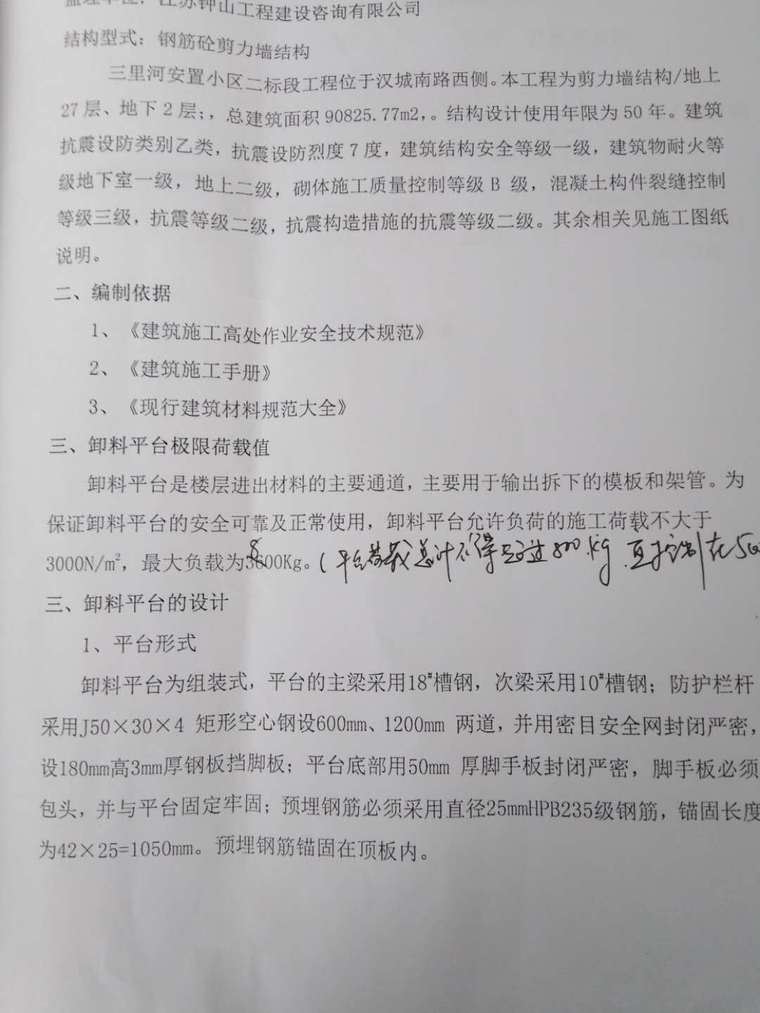 监理单位：江苏钟山工程建设咨询有限公司
结构型式：钢筋砼剪力墙结构
三里河安置小区二标段工程位于汉城南路西侧。本工程为剪力墙结构/地上
27层、地下2层；，总建筑面积90825.77m2，。结构设计使用年限为50年。建筑
抗震设防类别乙类，抗震设防烈度7度，建筑结构安全等级一级，建筑物耐火等
级地下室一级，地上二级，砌体施工质量控制等级B 级，混凝土构件裂缝控制
等级三级，抗震等级二级，抗震构造措施的抗震等级二级。其余相关见施工图纸
说明。
二、编制依据
1、《建筑施工高处作业安全技术规范》
2、《建筑施工手册》
3、《现行建筑材料规范大全》
三、卸料平台极限荷载值
卸料平台是楼层进出材料的主要通道，主要用于输出拆下的模板和架管。为
保证卸料平台的安全可靠及正常使用，卸料平台允许负荷的施工荷载不大于
3000N/m²，最大负载为800Kg。（平台荷载总计不得超过800Kg. 控制在
三、卸料平台的设计
1、平台形式
卸料平台为组装式，平台的主梁采用18#槽钢，次梁采用10#槽钢；防护栏杆
采用J50×30×4 矩形空心钢设600mm、1200mm 两道，并用密目安全网封闭严密，
设180mm高3mm厚钢板挡脚板；平台底部用50mm 厚脚手板封闭严密，脚手板必须
包头，并与平台固定牢固；预埋钢筋必须采用直径25mmHPB235级钢筋，锚固长度
为42×25=1050mm。预埋钢筋锚固在顶板内。